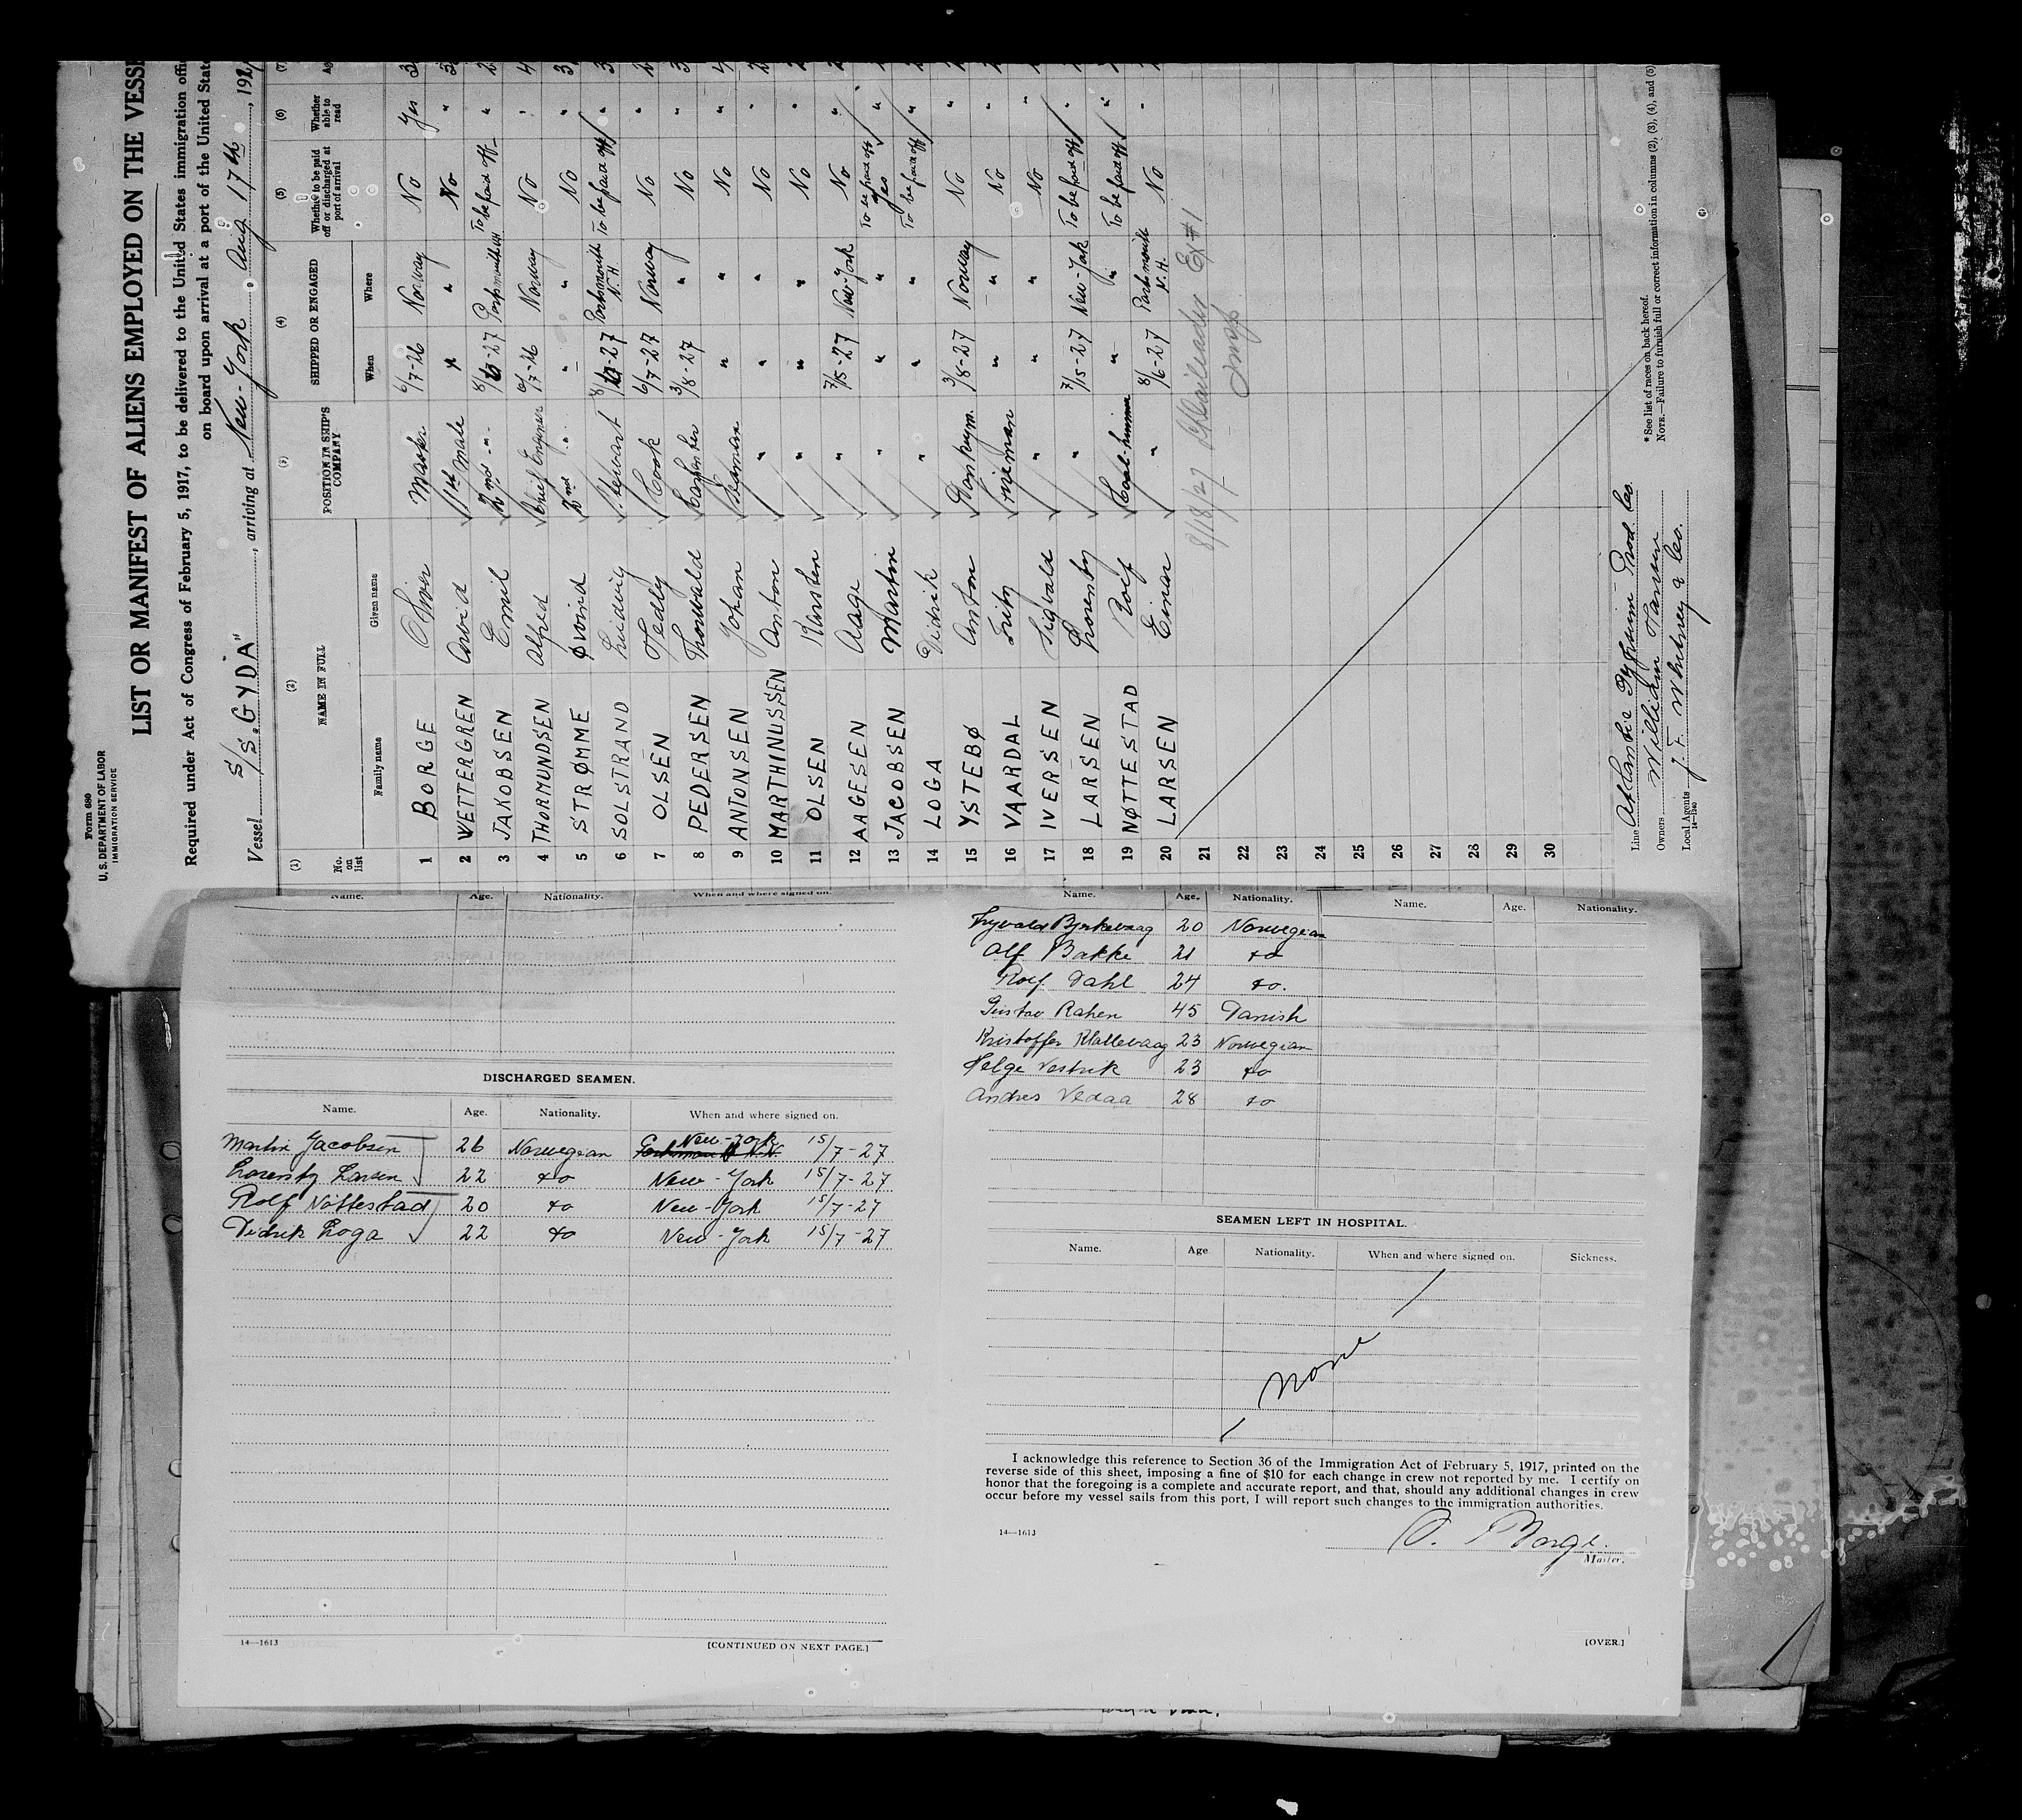 Form 680
U. S. DEPARTMENT OF LABOR
IMMIGRATION SERVICE
LIST OR MANIFEST OF ALIENS EMPLOYED ON THE VESSE
Required under Act of Congress of February 5, 1917, to be delivered to the United States immigration offi
on board upon arrival at a port of the United State
Vessel S/S. "GYDA", arriving at New-York Aug 17th, 192
(1) (2) (3) (4) (5) (6) (7)
No. on list NAME IN FULL POSITION IN SHIP'S COMPANY SHIPPED OR ENGAGED Whether to be paid off or discharged at port of arrival Whether able to read
Family name Given name When Where
1 BORGE Master 6/7-26 Norway No Yes
2 WETTERGREN Arvid 1th Mate " " No "
3 JAKOBSEN Emil 2nd -"- 8/6-27 Portsmouth NH To be paid off "
4 THORMUNDSEN Alfred Chief Engineer 6/7-26 Norway No "
5 STRØMME Øivind 2nd " " " No "
6 SOLSTRAND Ludvig Stewart 8/6-27 Portsmouth N.H. To be paid off "
7 OLSEN Tedly Cook 6/7-27 Norway No "
8 PEDERSEN Thorwald Carpenter 3/8-27 " No "
9 ANTONSEN Johan Seaman " " No "
10 MARTHINUSSEN Anton " " " No "
11 OLSEN Karsten " " " No "
12 AAGESEN Aage " 7/15-27 New-York No "
13 JACOBSEN Martin " " " To be paid off Yes "
14 LOGA Didrik " " " To be paid off "
15 YSTEBØ Anton Donkeym. 3/8-27 Norway No "
16 VAARDAL Fritz Fireman " " No "
17 IVERSEN Sigvald " " " No "
18 LARSEN Lorentz " 7/15-27 New-York To be paid off "
19 NØTTESTAD Rolf Coal-trimmer " " To be paid off "
20 LARSEN Einar " 8/6-27 Portsmouth N.H. No "
21
22
23
24
25
26
27
28
29
30
8/18/27 Ex #1
Insp
Line Atlantic Gypsum Prod Co.
Owners William Hansen
Local Agents J. F. Whitney & Co.
14-1240
* See list of races on back hereof.
NOTE.—Failure to furnish full or correct information in columns (2), (3), (4), and (5)
Name. Age. Nationality. When and where signed on.
DISCHARGED SEAMEN.
Name. Age. Nationality. When and where signed on.
Martin Jacobsen 26 Norwegian New-York 15/7-27
Lorentz Larsen 22 do New-York 15/7-27
Rolf Nöttestad 20 do New-York 15/7-27
Didrik Loga 22 do New-York 15/7-27
14—1613
[CONTINUED ON NEXT PAGE.]
Name. Age. Nationality. Name. Age. Nationality.
Tryvald Byrkevaag 20 Norwegian
Alf Bakke 21 do
Rolf Dahl 24 do.
Gustav Rahen 45 Danish
Kristoffer Klallevaag 23 Norwegian
Helge Vestrik 23 do
Andres Vedaa 28 do
SEAMEN LEFT IN HOSPITAL.
Name. Age Nationality. When and where signed on. Sickness.
— None —
I acknowledge this reference to Section 36 of the Immigration Act of February 5, 1917, printed on the
reverse side of this sheet, imposing a fine of $10 for each change in crew not reported by me. I certify on
honor that the foregoing is a complete and accurate report, and that, should any additional changes in crew
occur before my vessel sails from this port, I will report such changes to the immigration authorities.
14—1613
O. Borge.
Master.
[OVER.]